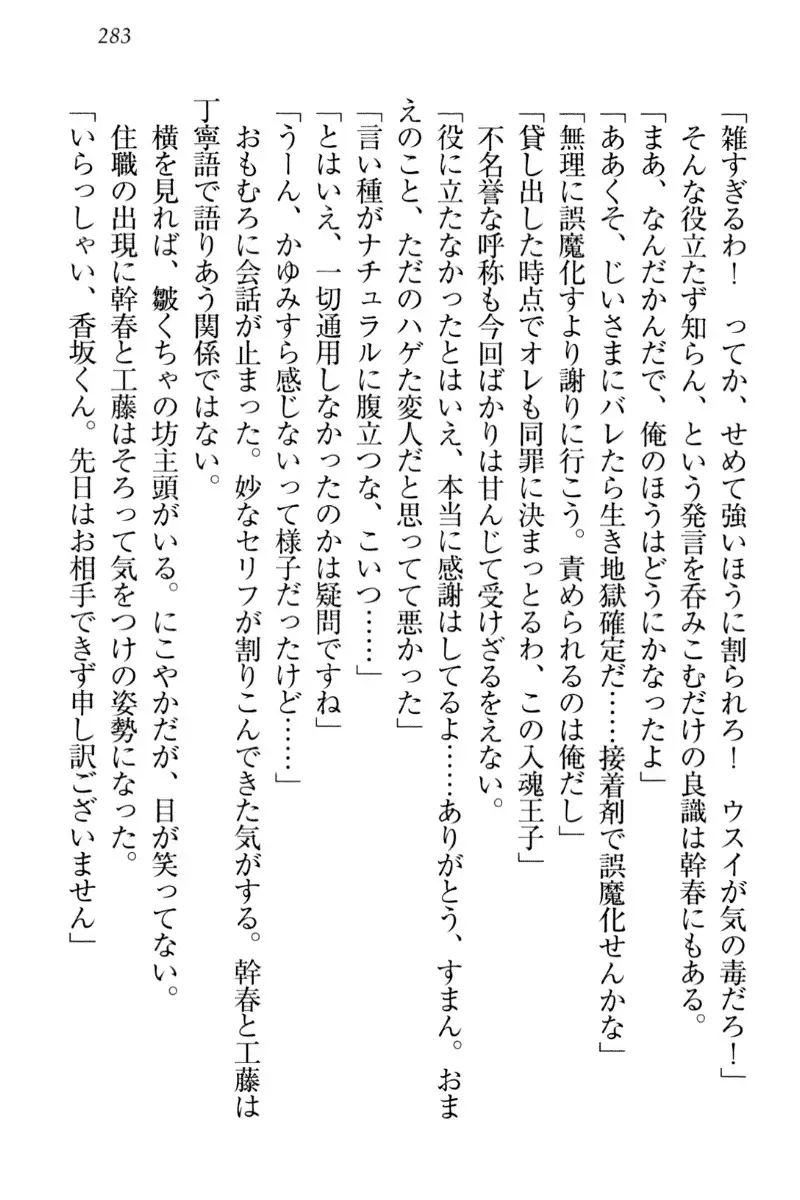 283
「雑すぎるわ！　ってか、せめて強いほうに割られろ！　ウスイが気の毒だろ！」
そんな役立たず知らん、という発言を呑みこむだけの良識は幹春にもある。
「まあ、なんだかんだで、俺のほうはどうにかなったよ」
「ああくそ、じいさまにバレたら生き地獄確定だ……接着剤で誤魔化せんかな」
「無理に誤魔化すより謝りに行こう。責められるのは俺だし」
「貸し出した時点でオレも同罪に決まっとるわ、この入魂王子」
不名誉な呼称も今回ばかりは甘んじて受けざるをえない。
「役に立たなかったとはいえ、本当に感謝はしてるよ……ありがとう、すまん。おま
えのこと、ただのハゲた変人だと思ってて悪かった」
「言い種がナチュラルに腹立つな、こいつ……」
「とはいえ、一切通用しなかったのかは疑問ですね」
「うーん、かゆみすら感じないって様子だったけど……」
おもむろに会話が止まった。妙なセリフが割りこんできた気がする。幹春と工藤は
丁寧語で語りあう関係ではない。
横を見れば、皺くちゃの坊主頭がいる。にこやかだが、目が笑ってない。
住職の出現に幹春と工藤はそろって気をつけの姿勢になった。
「いらっしゃい、香坂くん。先日はお相手できず申し訳ございません」